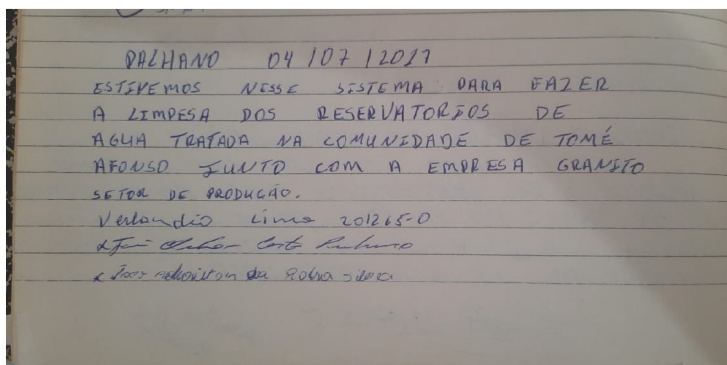 PALHANO 04/07/2017
ESTIVEMOS NESSE SISTEMA PARA FAZER
A LIMPESA DOS RESERVATORIOS DE
AGUA TRATADA NA COMUNIDADE DE TOMÉ
AFONSO JUNTO COM A EMPRESA GRANITO
SETOR DE PRODUÇÃO.
Verlandio Lima 201265-0
Costa
da Silva